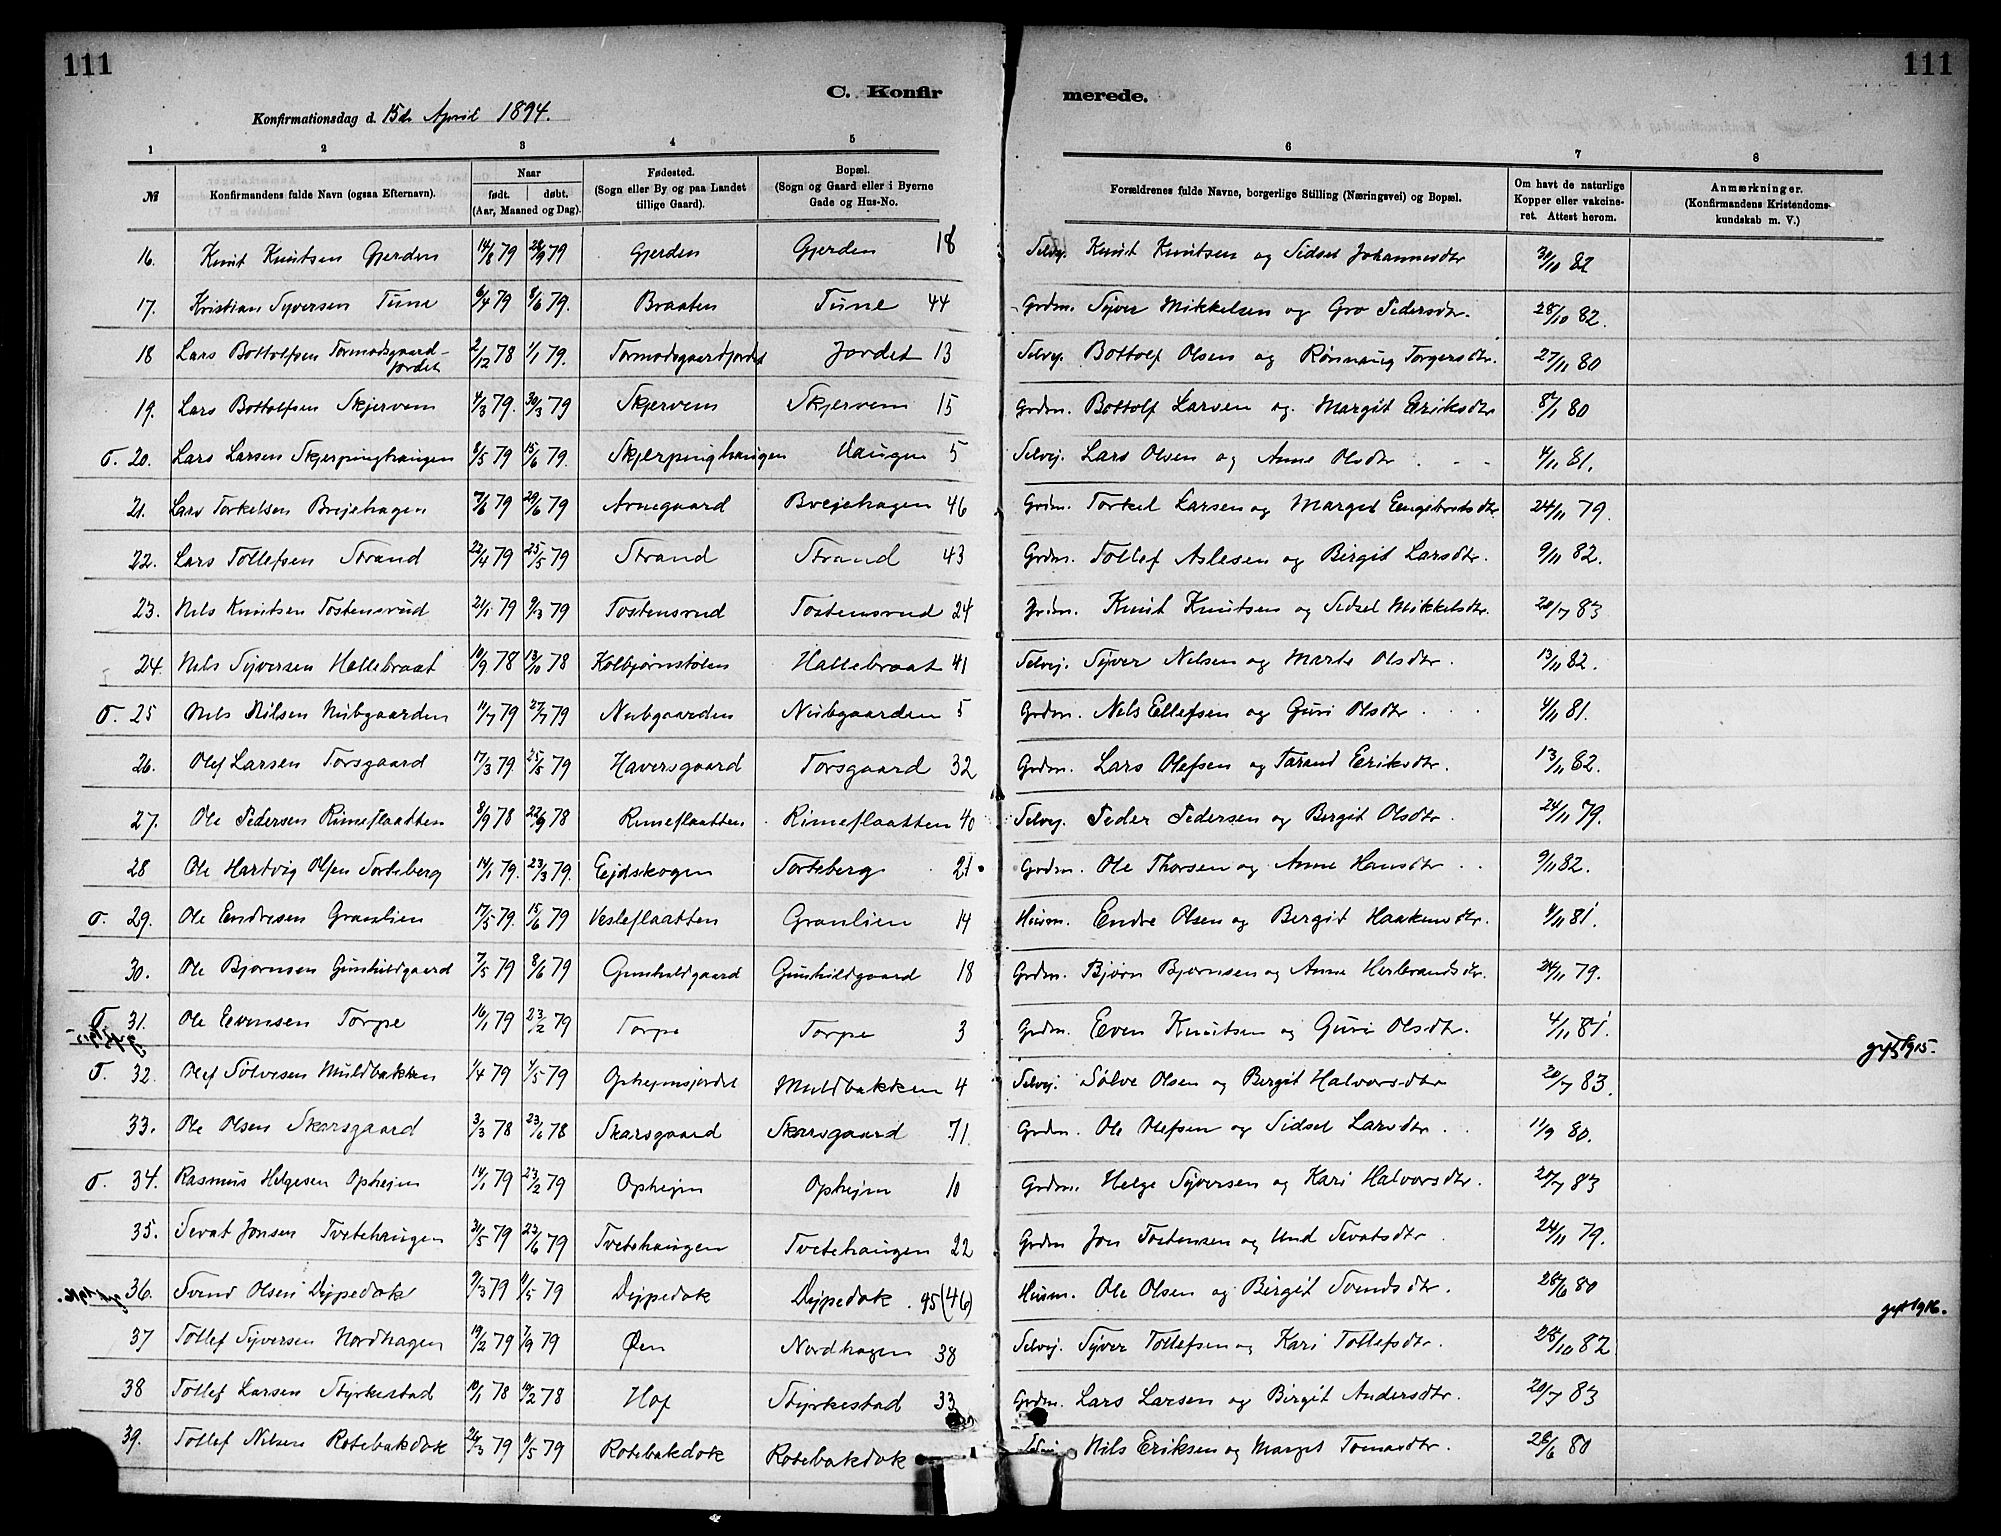 111
111
C. Konfirmerede.
Konfirmationsdag d. 15de April 1894.
1 2 3 4 5 6 7 8
№ Konfirmandens fulde Navn (ogsaa Efternavn). Naar født. døbt. (Aar, Maaned og Dag). Fødested. (Sogn eller By og paa Landet tillige Gaard). Bopæl. (Sogn og Gaard eller i Byerne Gade og Hus-No. Forældrenes fulde Navne, borgerlige Stilling (Næringsvei) og Bopæl. Om havt de naturlige Kopper eller vakcineret. Attest herom. Anmærkninger. (Konfirmandens Kristendomskundskab m. V.)
16. Knut Knutsen Gjerden 14/8 79 28/9 79 Gjerden Gjerden 18 Selvej. Knut Knutsen og Sidsel Johannesdtr 30/10 82
17. Kristian Syversen Tune 6/4 79 8/6 79. Braaten Tune 44 Grdm. Syver Mikkelsen og Gro Pedersdtr. 28/10 82.
18 Lars Bottolfsen Tormodsgaard-jordet 2/12 78 1/1 79. Tormodsgaardjordet Jordet 13 Selvej. Bottolf Olsen og Rønnaug Torgersdtr. 27/11 80
19. Lars Bottolfsen Skjervem 4/3 79. 30/3 79 Skjervem Skjervem 15 Grdm. Bottolf Larsen og Margit Eriksdtr 80
T. 20. Lars Larsen Skjerpinghaugen 8/5 79 15/6 79. Skjerpinghaugen Haugen 5 Selvej. Lars Olsen og Anne Olsdtr 4/11 81.
21. Lars Torkelsen Brejehagen 7/6 79 29/6 79 Arnegaard Brejehagen 46 Grdm. Torkel Larsen og Margit Engebretsdtr 24/11 79.
22. Lars Tollefsen Strand 22/4 79 25/5 79 Strand Strand 43 Grdm. Tollef Aslesen og Birgit Larsdtr. 9/11 82.
23. Nils Knutsen Tostensrud 21/1 79 9/3 79 Tostensrud Tostensrud 24 Grdm. Knut Knutsen og Sidsel Mikkelsdtr. 20/7 83
24. Nils Syversen Hallebraat 10/9 78 13/10 78 Kolbjørnstølen Hallebraat 41 Selvej. Syver Nilsen og Marte Olsdtr. 13/11 82.
T. 25 Nils Nilsen Nubgaarden 11/7 79 27/7 79 Nubgaarden Nubgaarden 5 Grdm. Nils Ellefsen og Guri Olsdtr 4/11 81.
26. Olef Larsen Torsgaard 17/3 79. 25/5 79 Haversgaard Torsgaard 32 Grdm. Lars Olefsen og Tarand Eriksdtr. 13/11 82.
27. Ole Pedersen Rimeflaatten 8/9 78 22/9 78 Rimeflaatten Rimeflaatten 40 Selvej. Peder Pedersen og Birgit Olsdtr. 24/11 79.
28 Ole Hartvig Olsen Torteberg 14/1 79. 23/3 79. Eejdskogen Torteberg 21 Grdm. Ole Thorsen og Anne Hansdtr 9/11 82.
T. 29. Ole Endresen Granlien 17/5 79. 15/6 79 Vesleflaatten Granlien 14 Husm. Endre Olsen og Bergit Haakensdtr. 4/11 81
30. Ole Bjørnsen Gunhildgaard 7/5 79 8/6 79 Gunhildgaard Gunhildgaard 18 Grdm. Bjørn Bjørnsen og Anne Herbrandsdtr. 24/11 79.
T. 31. Ole Evensen Torpe 16/1 79 23/2 79 Torpe Torpe 3 Grdm. Even Knutsen og Guri Olsdtr. 4/11 81. gift 1915.
T. 32. Olef Sølvesen Muldbakken 1/4 79 4/5 79 Ophejmsjordet Muldbakken 4 Selvej. Sølve Olsen og Birgit Halvorsdtr 20/7 83.
33. Ole Olsen Skarsgaard 3/3 78 23/6 78 Skarsgaard Skarsgaard 71. Grdm. Ole Olefsen og Sidsel Larsdtr 11/9 80.
T. 34. Rasmus Helgesen Ophejm 14/1 79 23/2 79 Ophejm Ophejm 10 Grdm. Helge Syversen og Kari Halvorsdtr. 20/7 83
35. Sevat Jonsen Tvetehaugen 31/5 79 22/6 79 Tvetehaugen Tvetehaugen 22 Grdm Jon Tostensen og Und Sevatsdtr 24/11 79.
36. Svend Olsen Dyjpedok 9/3 79 11/5 79 Dyjpedok Dyjpedok. 95 (46) Husm. Ole Olsen og Birgit Svendsdtr. 28/6 80 gift 1916.
37 Tollef Syversen Nordhagen 19/2 79 7/9 79 Øen Nordhagen 38 Selvej. Syver Tollefsen og Kari Tollefsdtr. 28/10 82
38 Tollef Larsen Styrkestad 10/1 78 10/2 78 Hof Styrkestad 33 Grdm. Lars Larsen og Birgit Andersdtr. 20/7 83
39. Tollef Nilsen Rotebakdok 26/3 79 11/5 79 Rotebakdok Rotebakdok Nils Eriksen og Marget Tomasdtr. 28/6 80